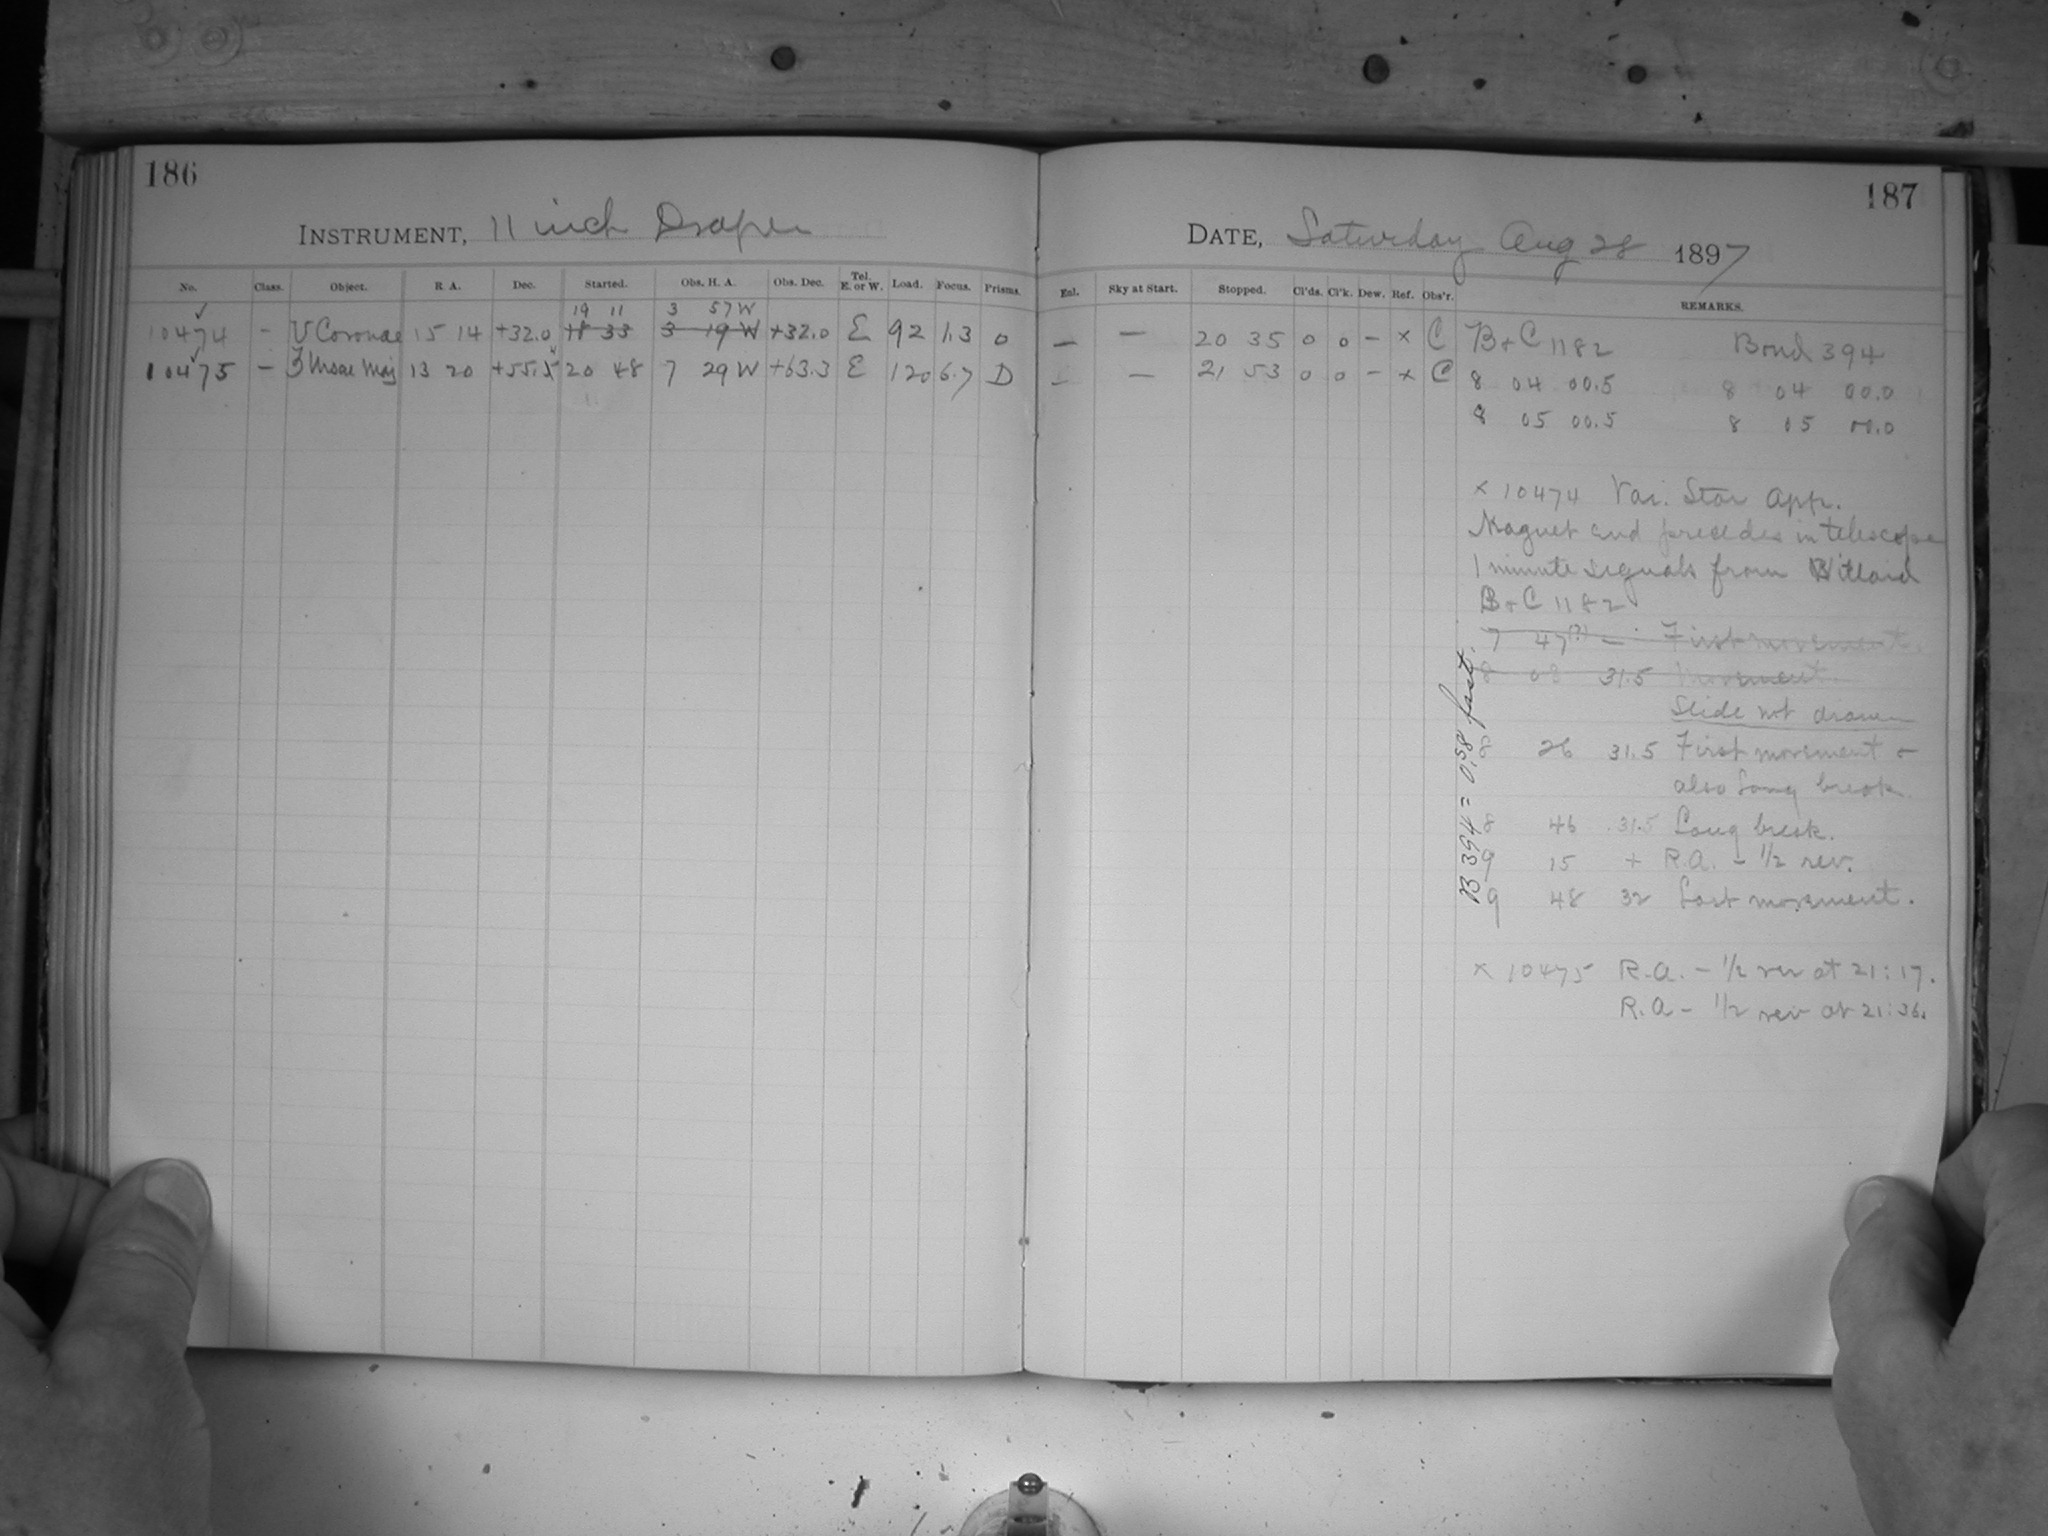 186
INSTRUMENT, 11 inch Draper
No. Class. Object. R. A. Dec. Started. Obs. H. A. Obs. Dec. Tel. E. or W. Load. Focus. Prisms.
19 11 3 57 W
10474 – U Coronae 15 14 +32.0 18 33 3 19 W +32.0 E 92 1.3 0
10475 – ζ Ursae Maj 13 20 +55.5 20 48 7 29 W +63.3 E 120 6.7 D
187
DATE, Saturday Aug 28 1897
Enl. Sky at Start. Stopped. Cl'ds. Cl'k. Dew. Ref. Obs'r. REMARKS.
– – 20 35 0 0 – × C B + C 1182 Bond 394
– – 21 53 0 0 – × C 8 04 00.5 8 04 00.0
8 05 00.5 8 05 00.0
× 10474 Var. Star App.
Magnet end precedes in telescope
1 minute signals from Willard
B + C 1182
7 47(?) – First movement.
8 08 31.5 Movement.
Slide not drawn
8 26 31.5 First movement +
also long break.
8 46 31.5 Long break.
9 15 + R.A. – 1/2 rev.
9 48 32 Last movement.
B 394 = 0.58 fast.
× 10475 R.A. – 1/2 rev at 21:17.
R.A – 1/2 rev at 21:36.